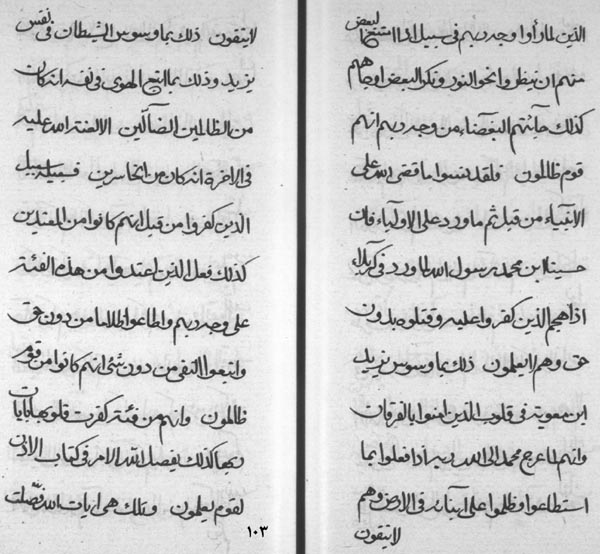 الذين لما رأوا وجه ربهم في سبيل اذا امتنع لبعض
منهم ان ينظروا نحو النور وتكره البعض اوجاههم
كذلك جآئتهم البغضآء من وجه ربهم انهم
قوم ظالمون ولقد نسوا ما قضى الله على
الانبيآء من قبل ثم ما ورد على الاوليآء فان
حسينا ابن محمد رسول الله لما ورد في كربلاء
اذا هجم الذين كفروا عليه وقتلوه بدون
حق وهم لا يعلمون ذلك بما وسوس يزيد
ابن معوية في قلوب الذين امنوا بالفرقان
وانهم لما عرج محمد الى الله ربه اذا فعلوا بما
استطاعوا وظلموا على ابنآئه في الارض وهم
لا يتقون
لا يتقون ذلك بما وسوس الشيطان في نفس
يزيد وذلك بما اتبع الهوى في نفسه انه كان
من الظالمين الضآلين الا لعنة الله عليه
في الاخرة انه كان من الخاسرين فسبيله سبيل
الذين كفروا من قبل انهم كانوا من المعتدين
كذلك فعل الذين اعتدوا من هذه الفئة
على وجه ربهم واطاعوا ظلاما من دون حق
واتبعوا النفى من دون شئ انهم كانوا من قوم
ظالمون وانهم من فئة كفرت قلوبها بايات
ربها كذلك يفصل الله الامر في كتاب الاذن
لقوم يعلمون وتلك هي ايات الله فصلت
١٠٣